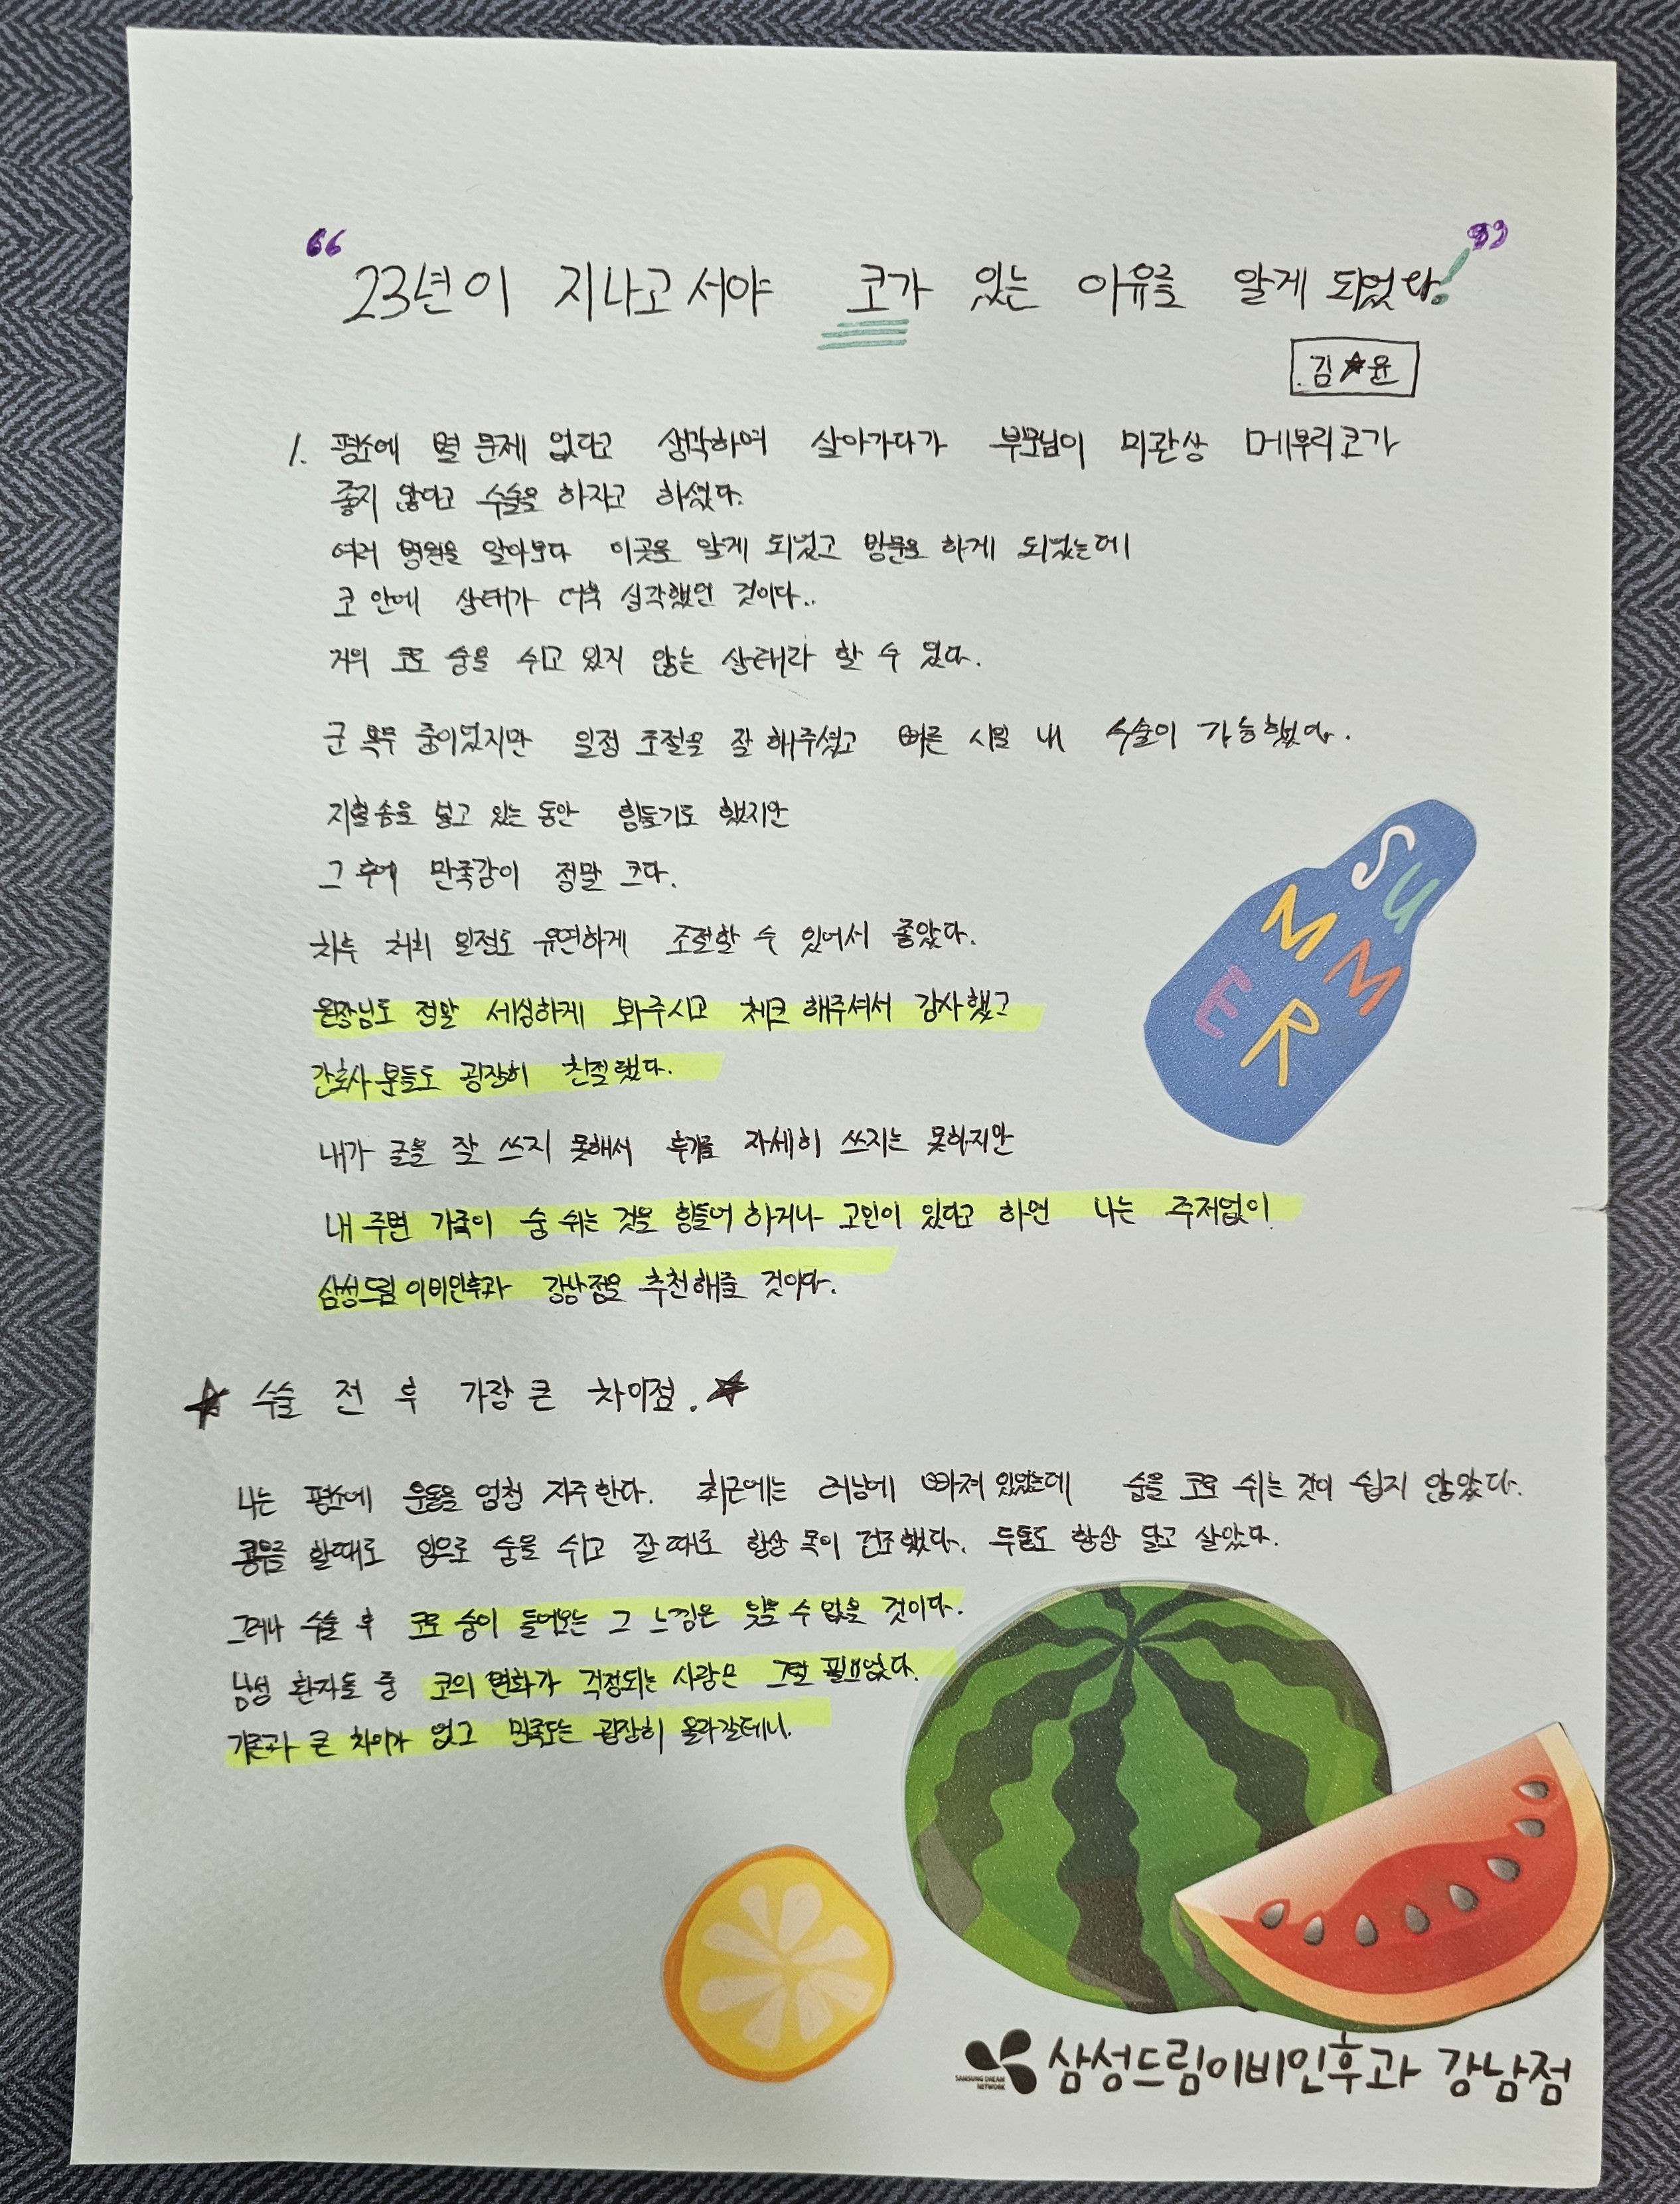 “ 23년이 지나고서야 코가 있는 이유를 알게 되었다! ”
김★윤
1. 평소에 별 문제 없다고 생각하며 살아가다가 부모님이 미관상 메부리코가
좋지 않다고 수술을 하자고 하셨다.
여러 병원을 알아보다 이곳을 알게 되었고 방문을 하게 되었는데
코 안에 상태가 더욱 심각했던 것이다..
거의 코로 숨을 쉬고 있지 않는 상태라 할 수 있다.
군 복무 중이었지만 일정 조절을 잘 해주셨고 빠른 시일 내 수술이 가능했다.
지혈솜을 넣고 있는 동안 힘들기도 했지만
그 후에 만족감이 정말 크다.
차후 처치 일정도 유연하게 조절할 수 있어서 좋았다.
원장님도 정말 세심하게 봐주시고 체크 해주셔서 감사했고
간호사 분들도 굉장히 친절했다.
내가 글을 잘 쓰지 못해서 후기를 자세히 쓰지는 못하지만
내 주변 가족이 숨 쉬는 것을 힘들어 하거나 고민이 있다고 하면 나는 주저없이
삼성드림 이비인후과 강남점을 추천해줄 것이다.
SUMMER
★ 수술 전 후 가장 큰 차이점. ★
나는 평소에 운동을 엄청 자주한다. 최근에는 러닝에 빠져있었는데 숨을 코로 쉬는 것이 쉽지 않았다.
공부를 할때도 입으로 숨을 쉬고 잘때도 항상 목이 건조했다. 두통도 항상 달고 살았다.
그러나 수술 후 코로 숨이 들어오는 그 느낌은 잊을 수 없을 것이다.
남성 환자들 중 코의 변화가 걱정되는 사람은 그럴 필요없다.
기존과 큰 차이가 없고 만족도는 굉장히 올라갈테니.
SAMSUNG DREAM NETWORK
삼성드림이비인후과 강남점